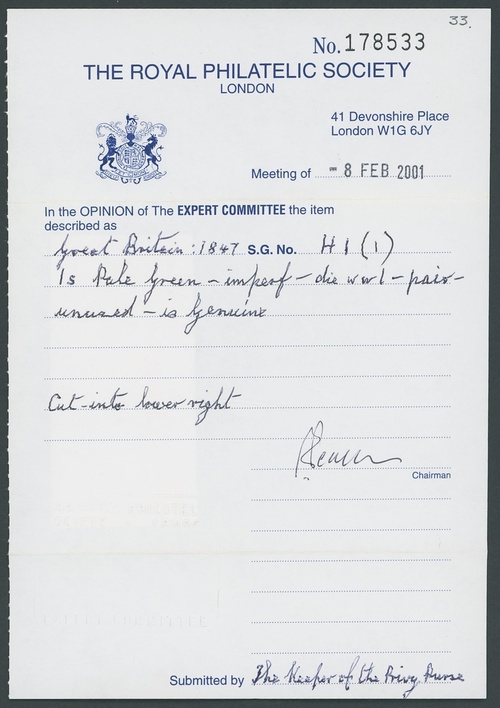 33.
No. 178533
THE ROYAL PHILATELIC SOCIETY
LONDON
41 Devonshire Place
London W1G 6JY
Meeting of - 8 FEB 2001
In the OPINION of The EXPERT COMMITTEE the item
described as
Great Britain : 1847 S.G. No. H1(1)
1s Pale Green - imperf - die ww1 - pair -
unused - is Genuine
Cut-into lower right
Chairman
Submitted by The Keeper of the Privy Purse